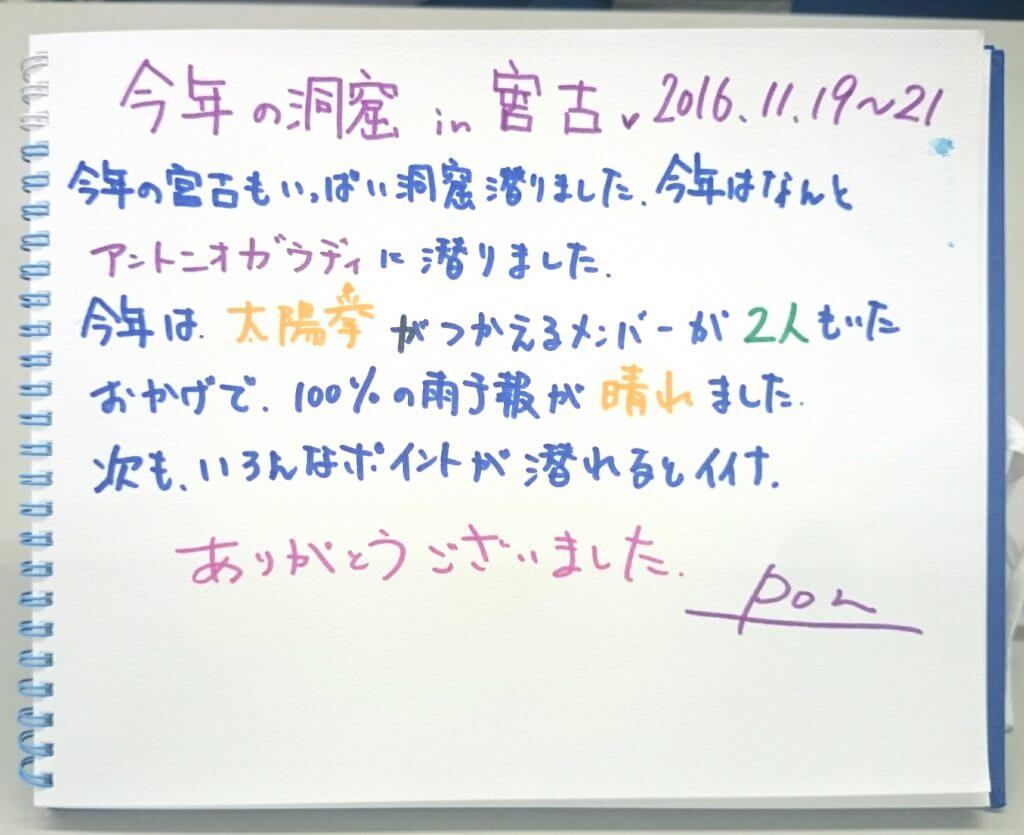 今年の洞窟 in 宮古、2016.11.19～21
今年の宮古もいっぱい洞窟潜りました.今年はなんと
アントニオガウディに潜りました.
今年は.太陽拳がつかえるメンバーが2人もいた
おかげで.100%の雨予報が晴れました.
次も、いろんなポイントが潜れるとイイナ.
ありがとうございました.
pon